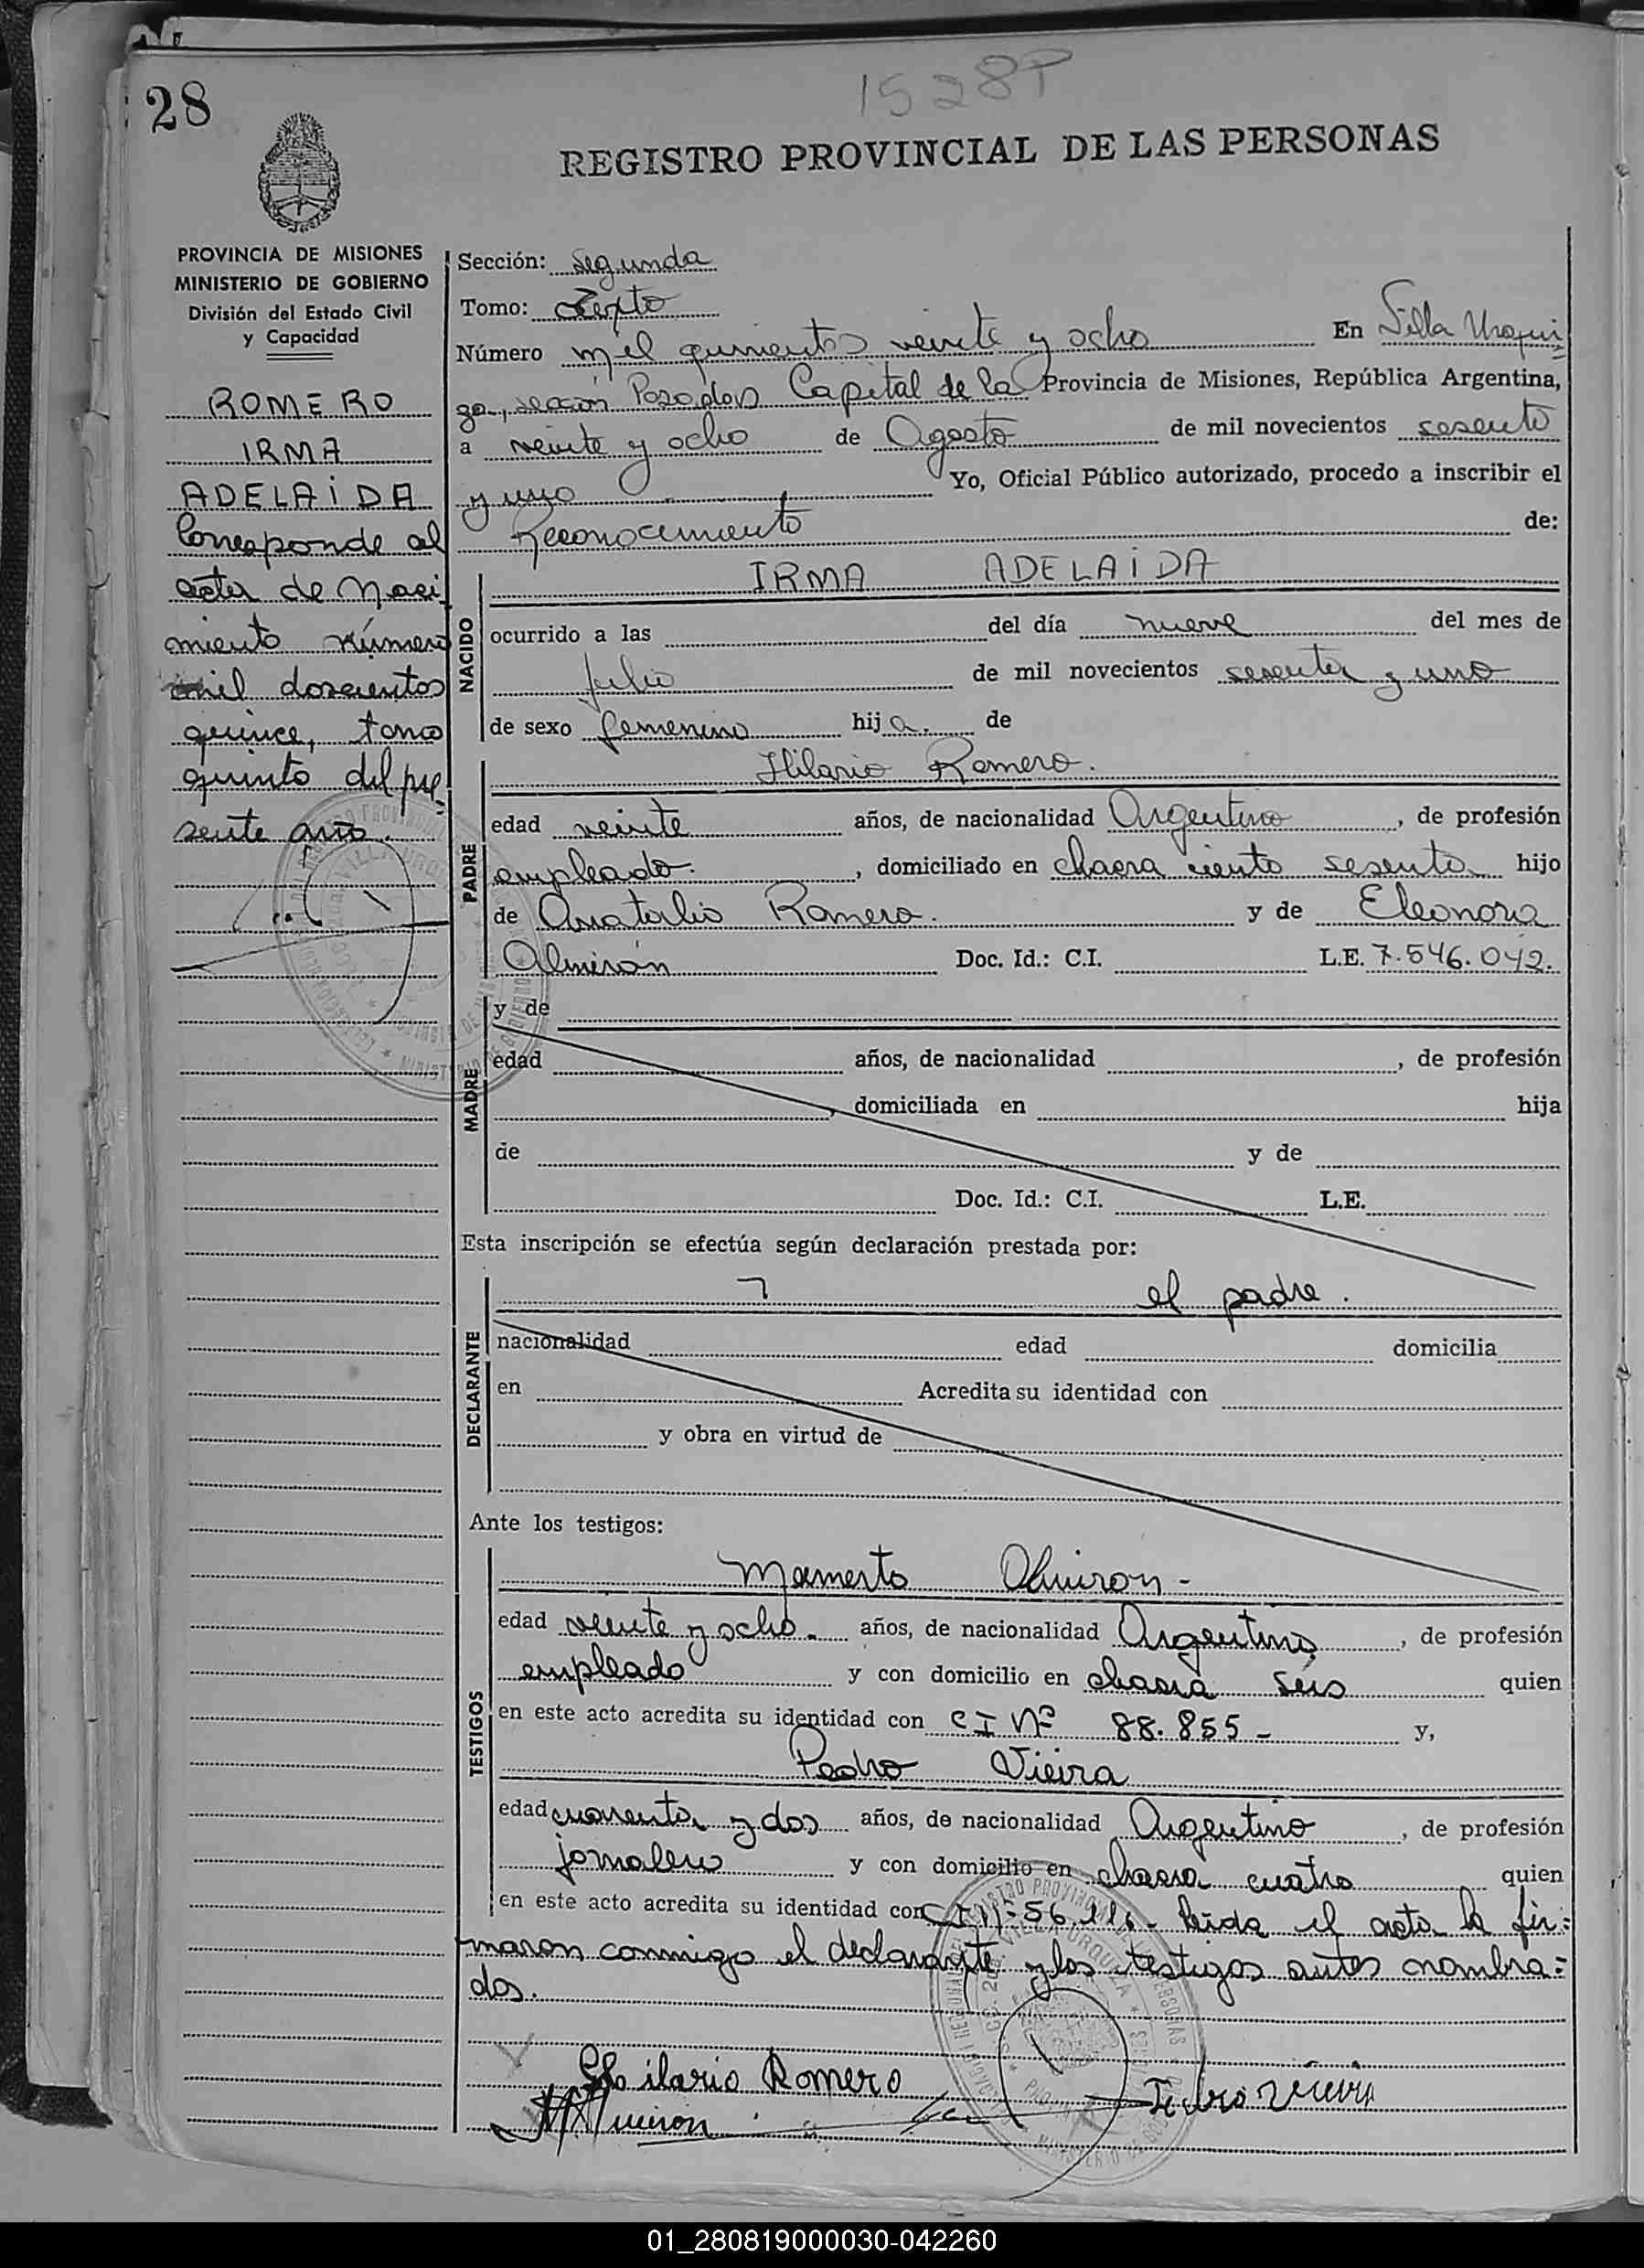 28
1528P
REGISTRO PROVINCIAL DE LAS PERSONAS
PROVINCIA DE MISIONES
MINISTERIO DE GOBIERNO
División del Estado Civil
y Capacidad
ROMERO
IRMA
ADELAIDA
Corresponde al
acta de Naci
miento número
mil doscientos
quince, tomo
quinto del pre
sente año.
Sección: Segunda
Tomo: Sexto
Número mil quinientos veinte y ocho En Villa Urqui
za, sección Posadas Capital de la Provincia de Misiones, República Argentina,
a veinte y ocho de Agosto de mil novecientos sesenta
y uno Yo, Oficial Público autorizado, procedo a inscribir el
Reconocimiento de:
NACIDO
IRMA ADELAIDA
ocurrido a las del día nueve del mes de
Julio de mil novecientos sesenta y uno
de sexo femenino hija. de
PADRE
Hilario Romero.
edad veinte años, de nacionalidad Argentino, de profesión
empleado. , domiciliado en chacra ciento sesenta hijo
de Anatalio Romero. y de Eleonora
Almirón Doc. Id.: C.I. L.E. 7.546.042.
MADRE
y de
edad años, de nacionalidad , de profesión
, domiciliada en hija
de y de
Doc. Id.: C.I. L.E.
Esta inscripción se efectúa según declaración prestada por:
DECLARANTE
el padre.
nacionalidad edad domicilia
en Acredita su identidad con
y obra en virtud de
Ante los testigos:
TESTIGOS
Mamerto Almiron -
edad veinte y ocho. años, de nacionalidad Argentino, de profesión
empleado y con domicilio en chacra seis quien
en este acto acredita su identidad con C I Nº 88.855 - y,
Pedro Vieira
edad cuarenta y dos años, de nacionalidad Argentino, de profesión
jornalero y con domicilio en chacra cuatro quien
en este acto acredita su identidad con leida el acta la fir=
maron conmigo el declarante y los testigos antes nombra=
dos.
Hilario Romero
Pedro Vieira
MAlmiron
01_280819000030-042260